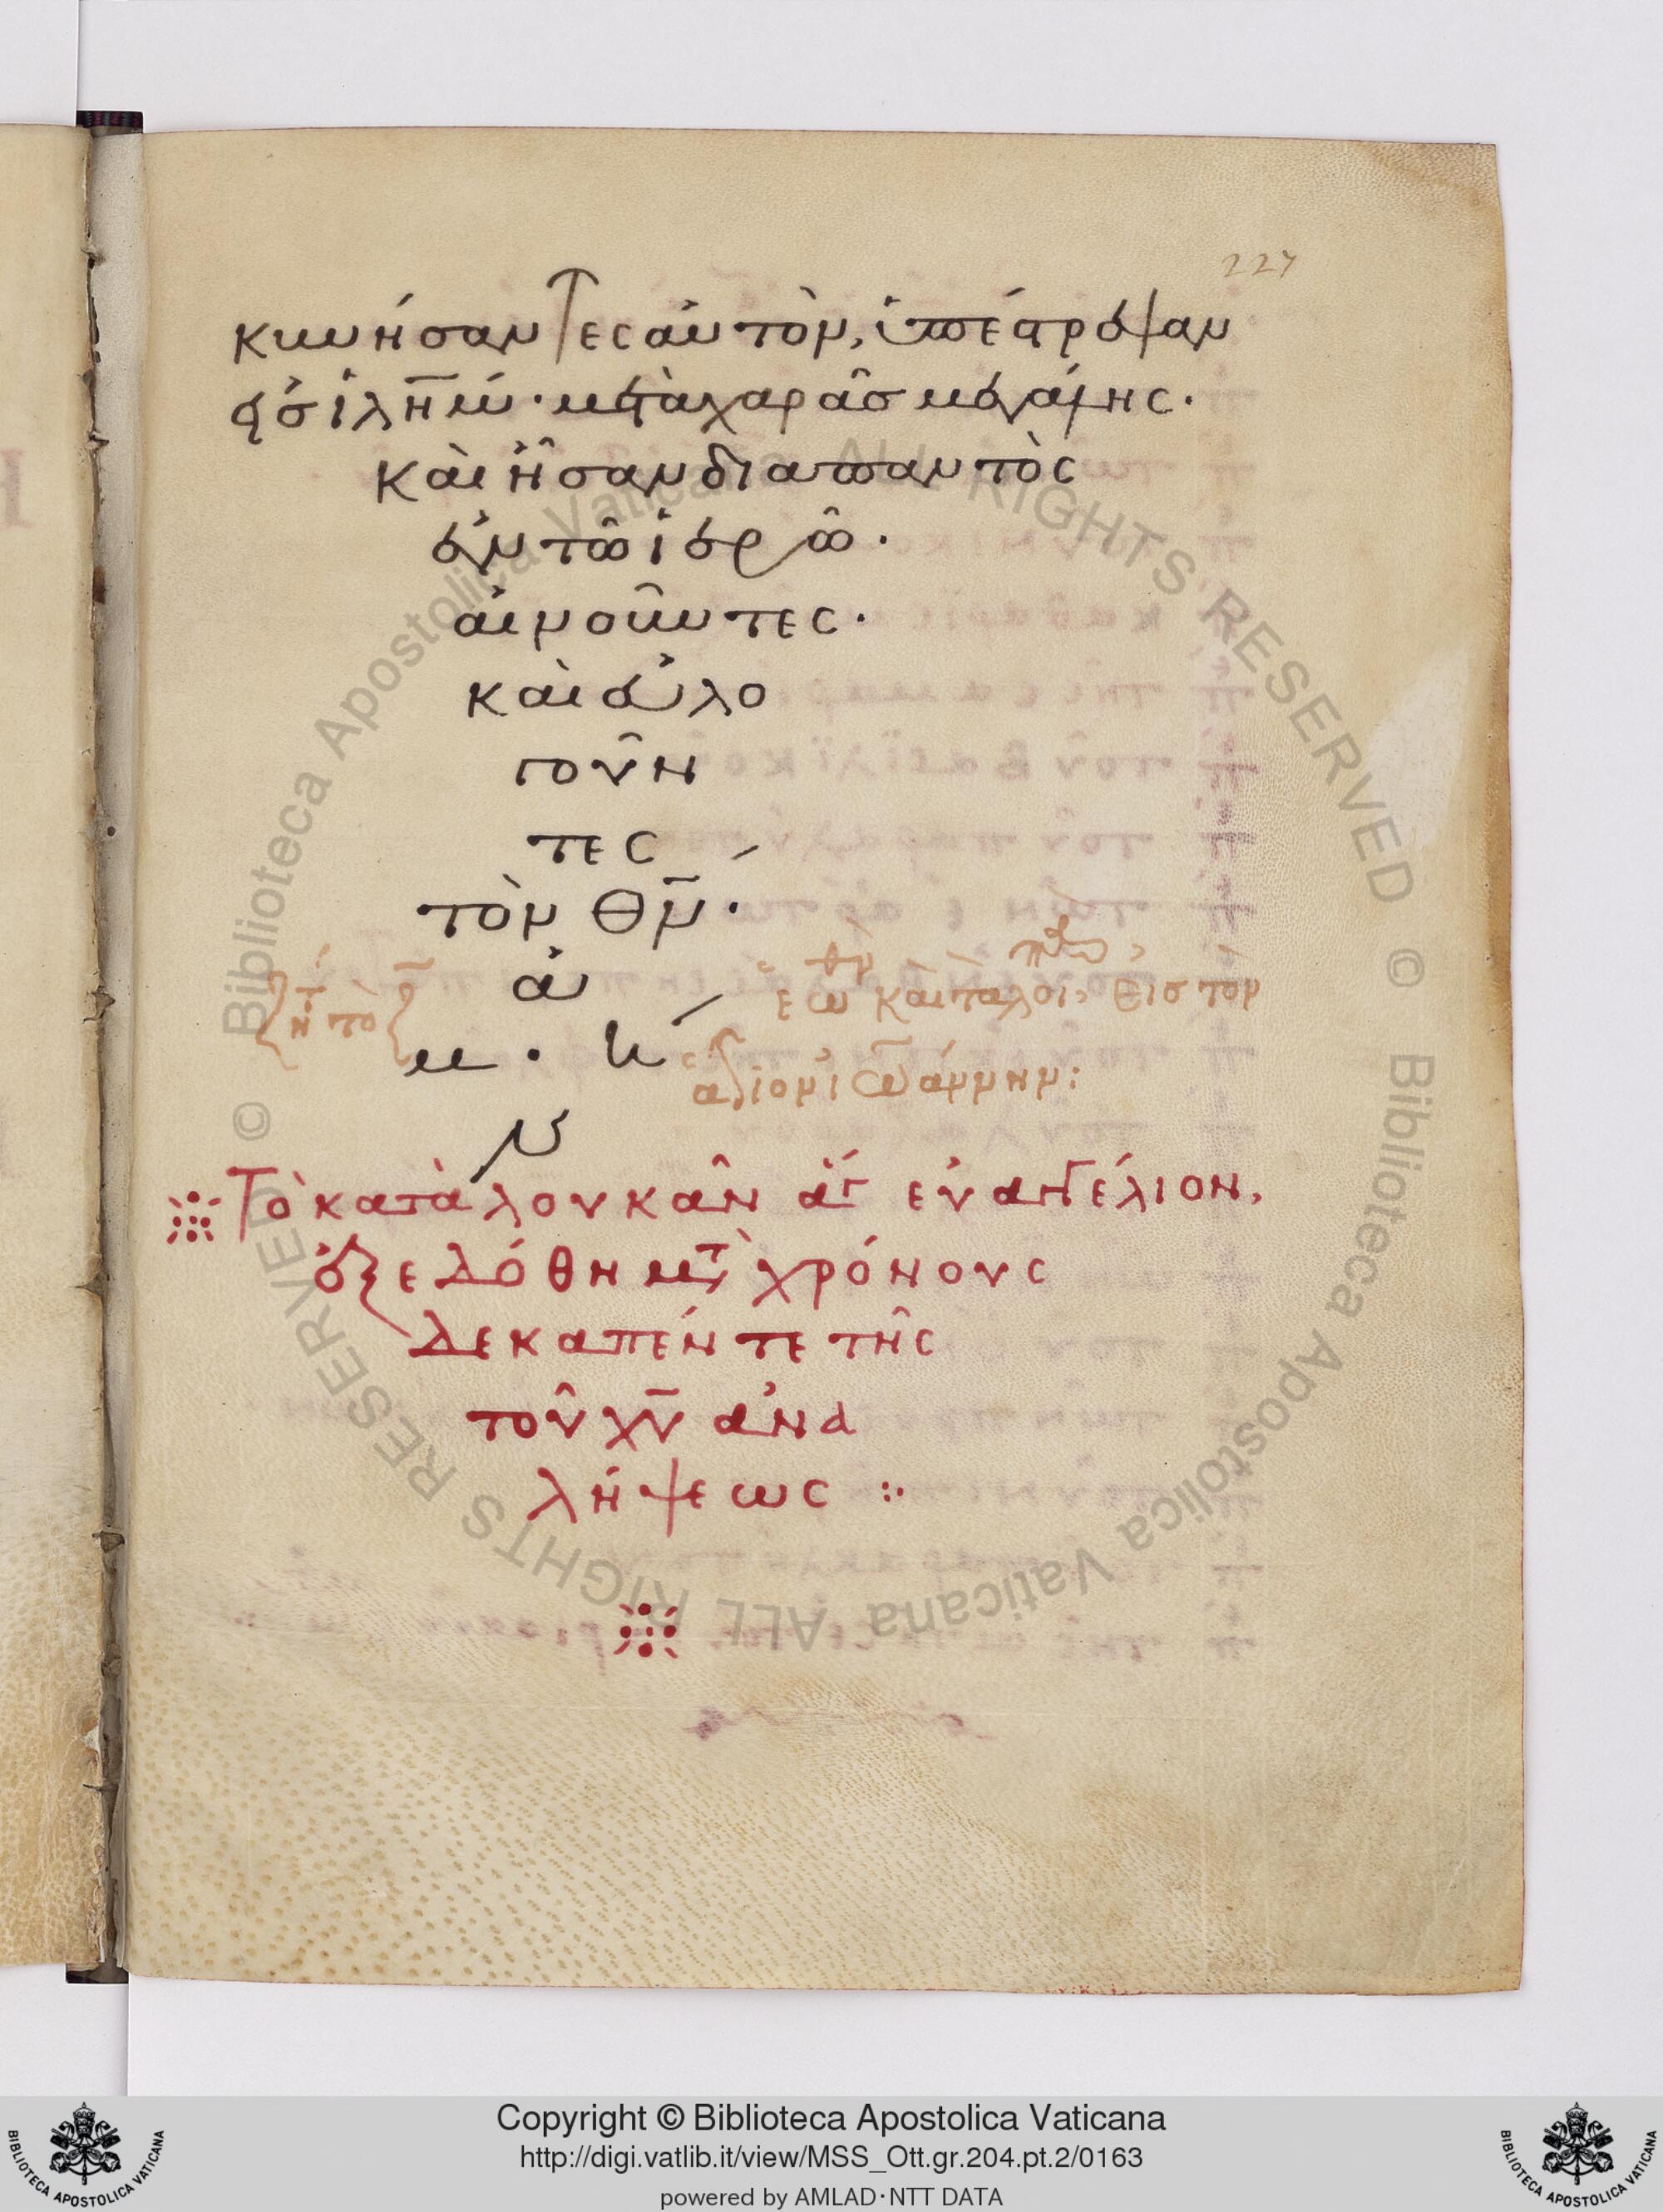 227
κυνήσαντες αὐτὸν, ὑπέστρεψαν
εἰς ἱλη̅μ· μετὰ χαρᾶς μεγάλης·
καὶ ἦσαν διαπαντὸς
ἐν τῶ ἱερῶ·
αἰνοῦντες·
καὶ εὐλο
γοῦν
τες
τὸν θ̅ν·
ἀ
μ · ή
ν
Τὸ κατὰ λουκᾶν ἅγ εὐαγγέλιον,
ἐξεδόθη μετ χρόνους
δεκαπέντε τῆς
τοῦ χ̅υ ἀνα
λήψεως :·
Copyright © Biblioteca Apostolica Vaticana
http://digi.vatlib.it/view/MSS_Ott.gr.204.pt.2/0163
powered by AMLAD·NTT DATA
BIBLIOTECA APOSTOLICA VATICANA
BIBLIOTECA APOSTOLICA VATICANA
© Biblioteca Apostolica Vaticana ALL RIGHTS RESERVED
© Biblioteca Apostolica Vaticana ALL RIGHTS RESERVED